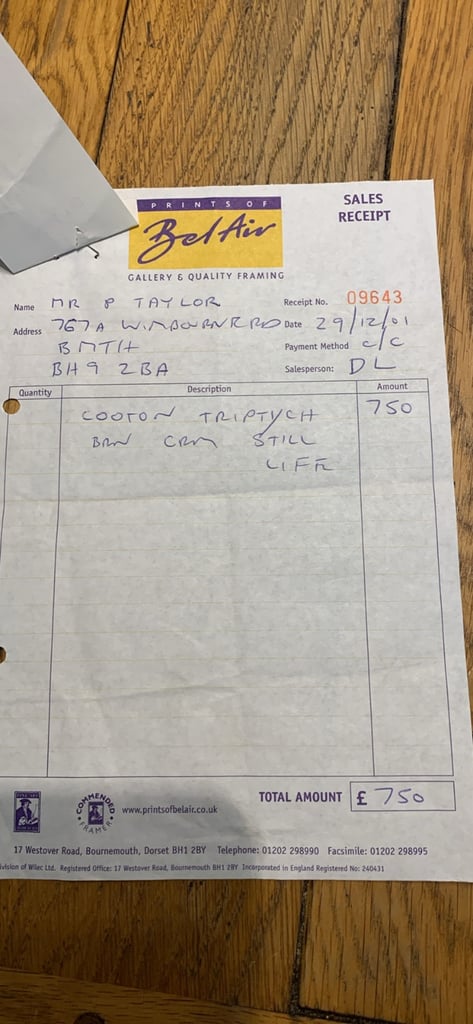 PRINTS OF
Bel Air
GALLERY & QUALITY FRAMING
SALES
RECEIPT
Name MR P TAYLOR
Receipt No. 09643
Address 767A WIMBOURNE RD
Date 29/12/01
BMTH
Payment Method C/C
BH9 2BA
Salesperson: DL
Quantity Description Amount
COOTON TRIPTYCH 750
BRN CRM STILL
LIFE
COMMENDED
FRAMER
www.printsofbelair.co.uk
TOTAL AMOUNT £ 750
17 Westover Road, Bournemouth, Dorset BH1 2BY Telephone: 01202 298990 Facsimile: 01202 298995
ivision of Wilec Ltd. Registered Office: 17 Westover Road, Bournemouth BH1 2BY Incorporated in England Registered No: 240431